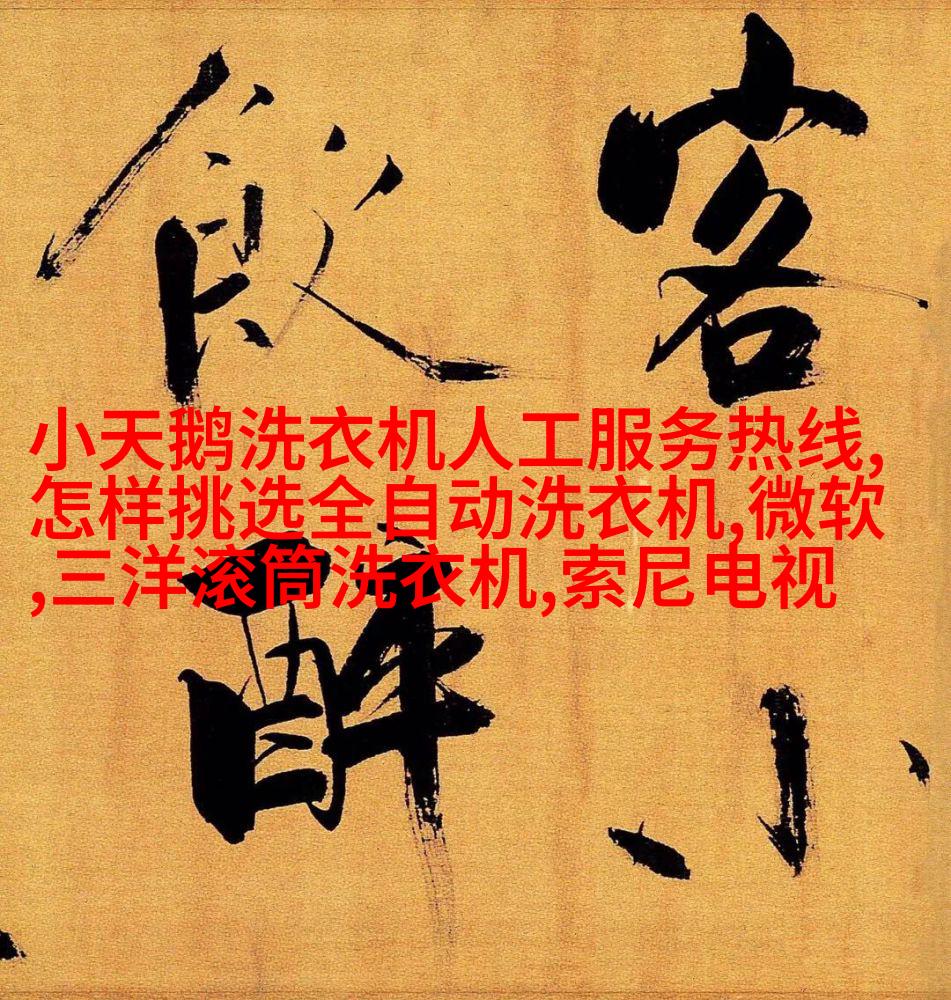 客小
飲醉
小天鹅洗衣机人工服务热线,
怎样挑选全自动洗衣机,微软
,三洋滚筒洗衣机,索尼电视